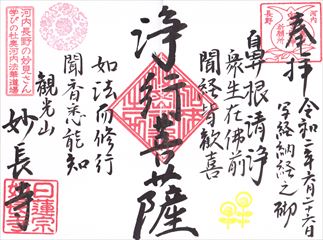 奉拝
令和二年六月二十六日
写経納経之砌
鼻根清浄
衆生在佛前
聞経皆歓喜
浄行菩薩
如法而修行
聞香悉能知
観光山
妙長寺
河内長野の妙見さん
学びの杜奥河内法華道場
河内
長野
日蓮宗